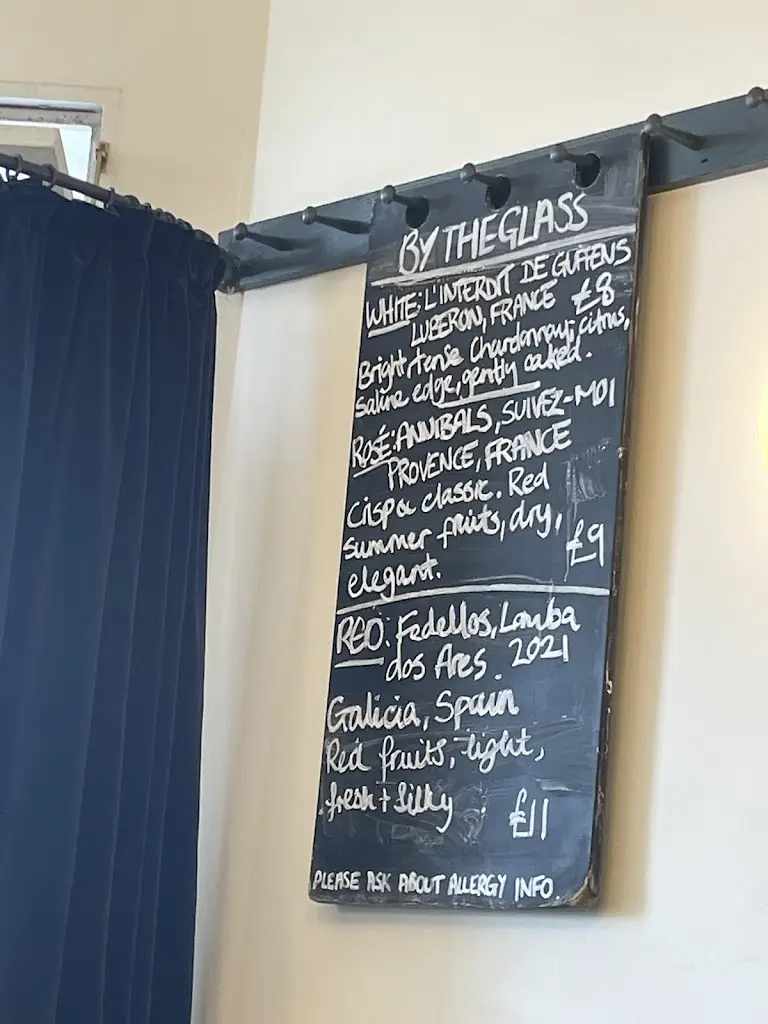 BY THE GLASS
WHITE: L'INTERDIT DE GUFFENS
LUBERON, FRANCE £8
Bright, tense Chardonnay; citrus,
saline edge, gently oaked.
ROSÉ: ANNIBALS, SUIVEZ-MOI
PROVENCE, FRANCE
Crisp & classic. Red
summer fruits, dry,
elegant. £9
RED: Fedellos, Lomba
dos Ares. 2021
Galicia, Spain
Red fruits, light,
fresh + silky £11
PLEASE ASK ABOUT ALLERGY INFO.